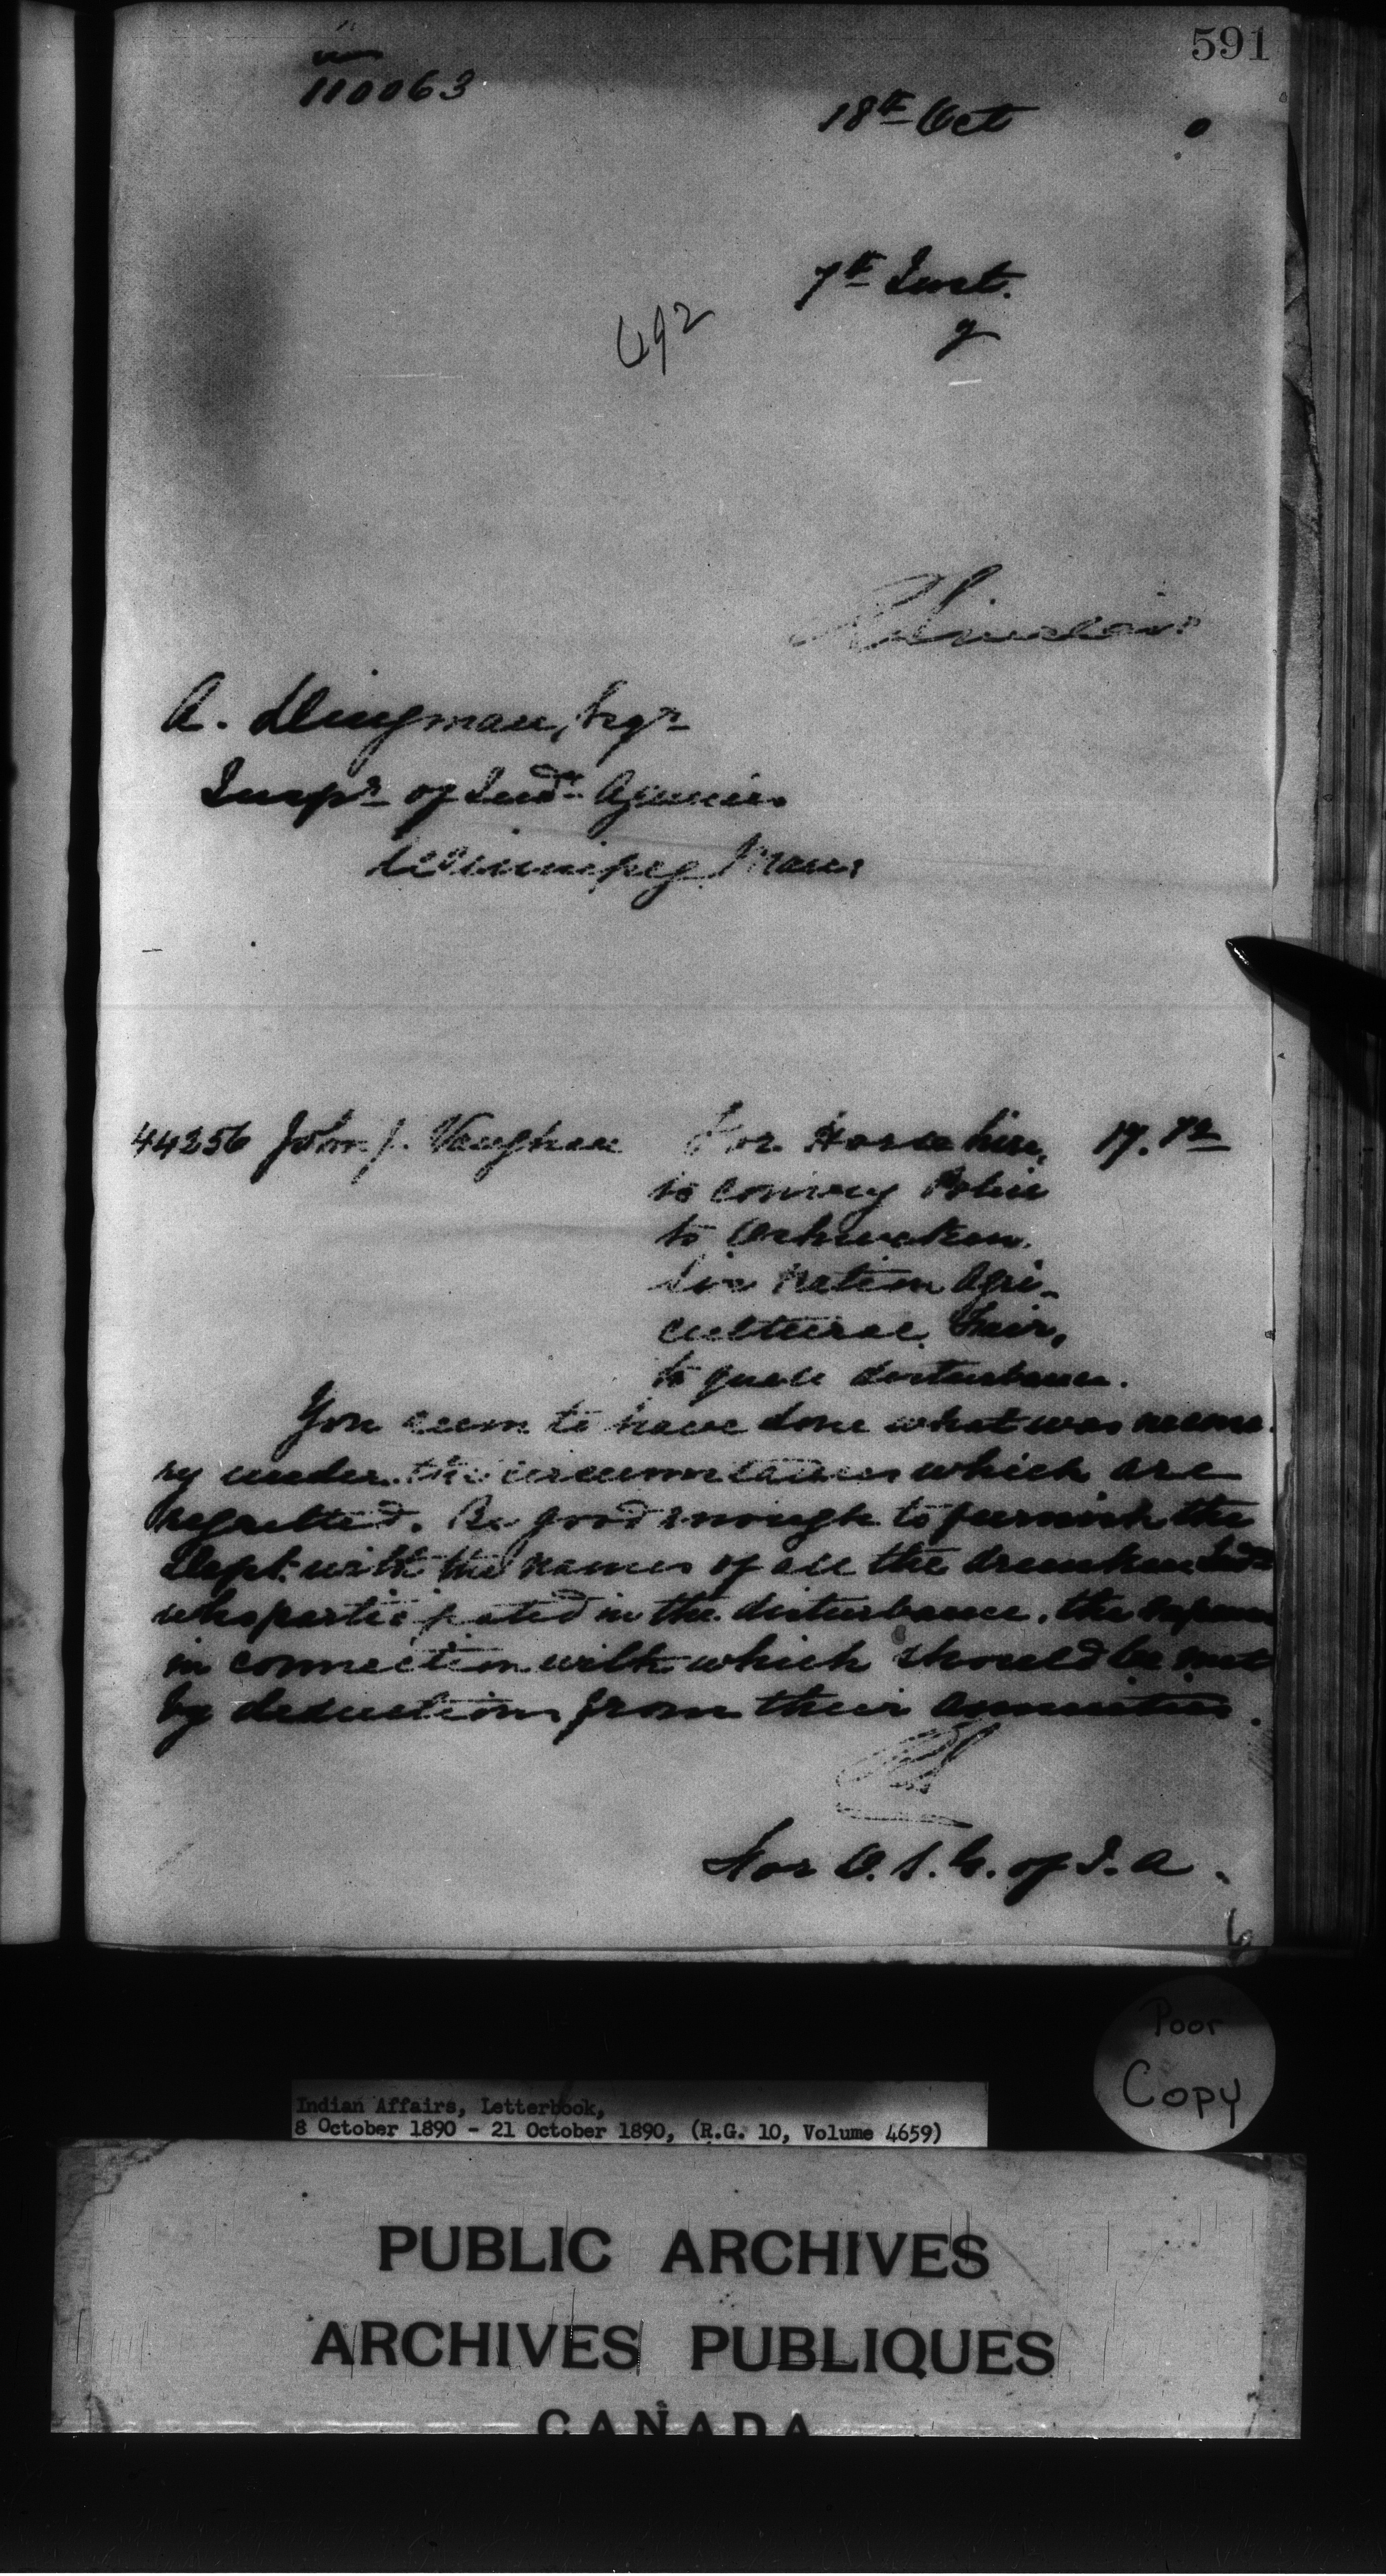 591
110063
18th Oct 0
7th Inst.
692
R Sinclair
A. Dingman, Esqr
Inspr of Indn Agencies
Winnipeg Man:
44256 John J. Vaughan For Horse hire, 17.72
to convey Police
to Oshweken.
Six Nation Agri-
cultural Fair,
to quell disturbance.
You seem to have done what was necessa
ry under the circumstances which are
regretted. Be good enough to furnish the
Dept. with the names of all the drunken Inds
who participated in the disturbance, the expense
in connection with which should be met
by deductions from their annuities.
RS
For D.S.G. of I.A.
Poor
Copy
Indian Affairs, Letterbook,
8 October 1890 - 21 October 1890, (R.G. 10, Volume 4659)
PUBLIC ARCHIVES
ARCHIVES PUBLIQUES
CANADA